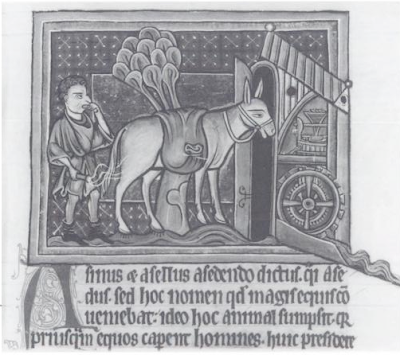 Asinus & asellus asedendo dictus. qi ase
dus. sed hoc nomen qd magis equis co
ueniebat: ideo hoc animal sumpsit. qr
priusqm equos caperent homines. huic presidere